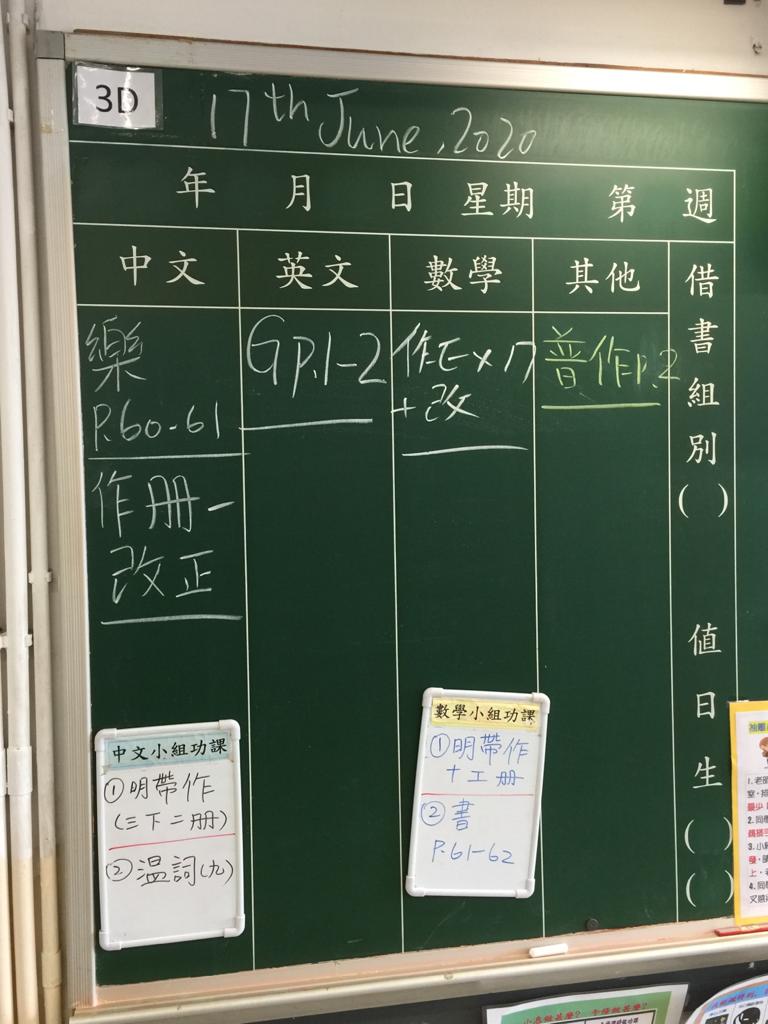 3D
17th June, 2020
年 月 日 星期 第 週
中文 英文 數學 其他
樂
P.60-61
作册-
改正
GP.1-2
作E×17
+改
普作P.2
借書組別
( )
值日生
( )
( )
中文小組功課
①明帶作
(三下二册)
②温詞(九)
數學小組功課
①明帶作
+工册
②書
P.61-62